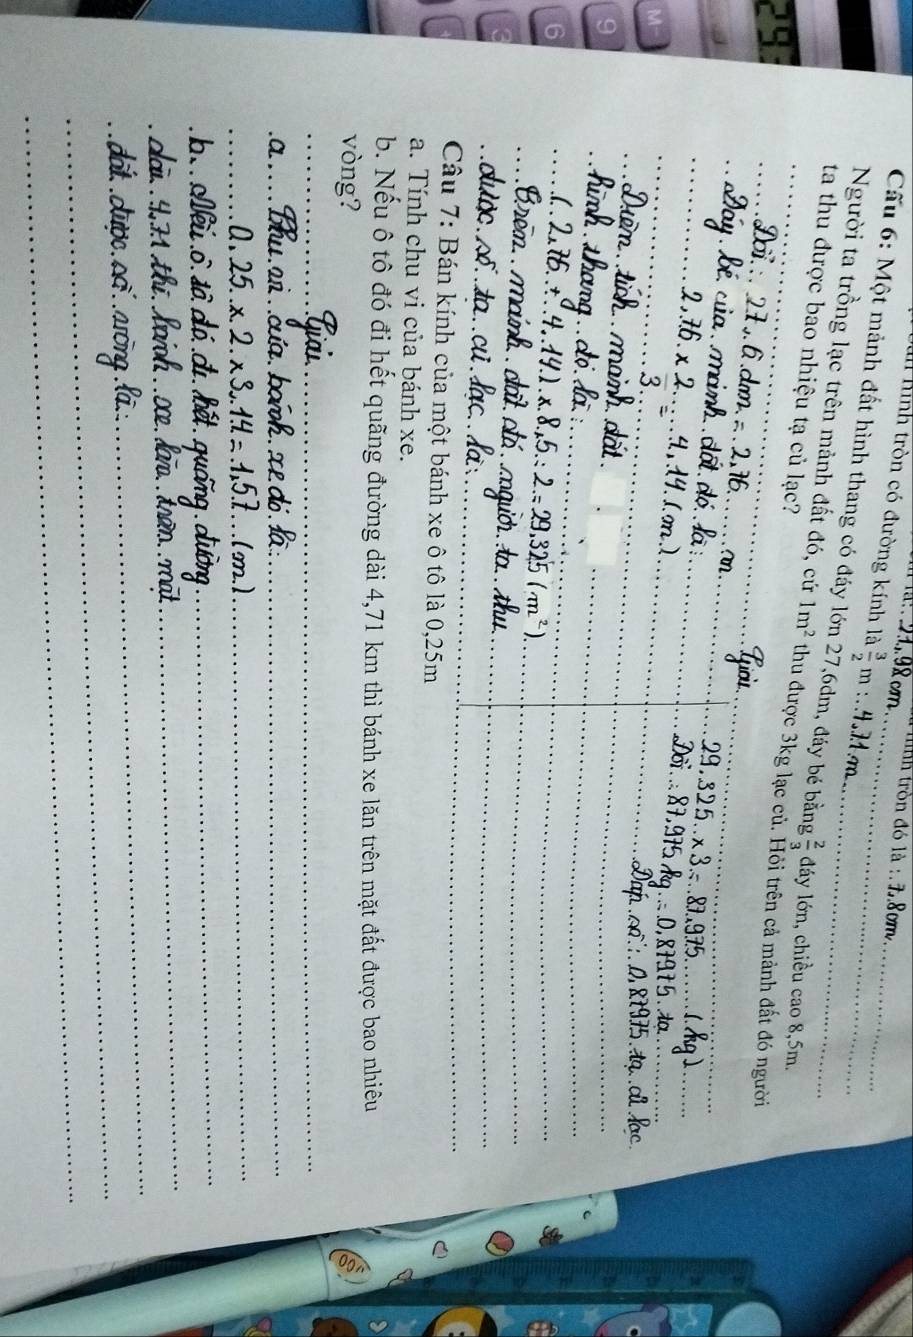 là: 21,98 cm
hình tròn đó là : 7,8cm
hình tròn có đường kính là 3/2 m : 4,71 m
Câu 6: Một mảnh đất hình thang có đáy lớn 27,6dm, đáy bé bằng 2/3 đáy lớn, chiều cao 8,5m.
Người ta trồng lạc trên mảnh đất đó, cứ 1m² thu được 3kg lạc củ. Hỏi trên cả mảnh đất đó người
ta thu được bao nhiêu tạ củ lạc?
Giải
Đổi: 27,6 dm = 2,76 m
Đáy bé của mảnh đất đó là:
2,76 x 2/3 = 4,14 (m)
Diện tích mảnh đất
hình thang đó là:
(2,76 + 4,14) x 8,5 : 2 = 29,325 (m²)
Trên mảnh đất đó người ta thu
được số tạ củ lạc là:
29,325 x 3 = 87,975 (kg)
Đổi 87,975 kg = 0,87975 tạ
Đáp số: 0,87975 tạ củ lạc
Câu 7: Bán kính của một bánh xe ô tô là 0,25m
a. Tính chu vi của bánh xe.
b. Nếu ô tô đó đi hết quãng đường dài 4,71 km thì bánh xe lăn trên mặt đất được bao nhiêu
vòng?
Giải
a. Chu vi của bánh xe đó là
0,25 x 2 x 3,14 = 1,57 (m)
b. Nếu ô tô đó đi hết quãng đường
dài 4,71 thì bánh xe lăn trên mặt
đất được số vòng là
M-
9
6
3
+
29